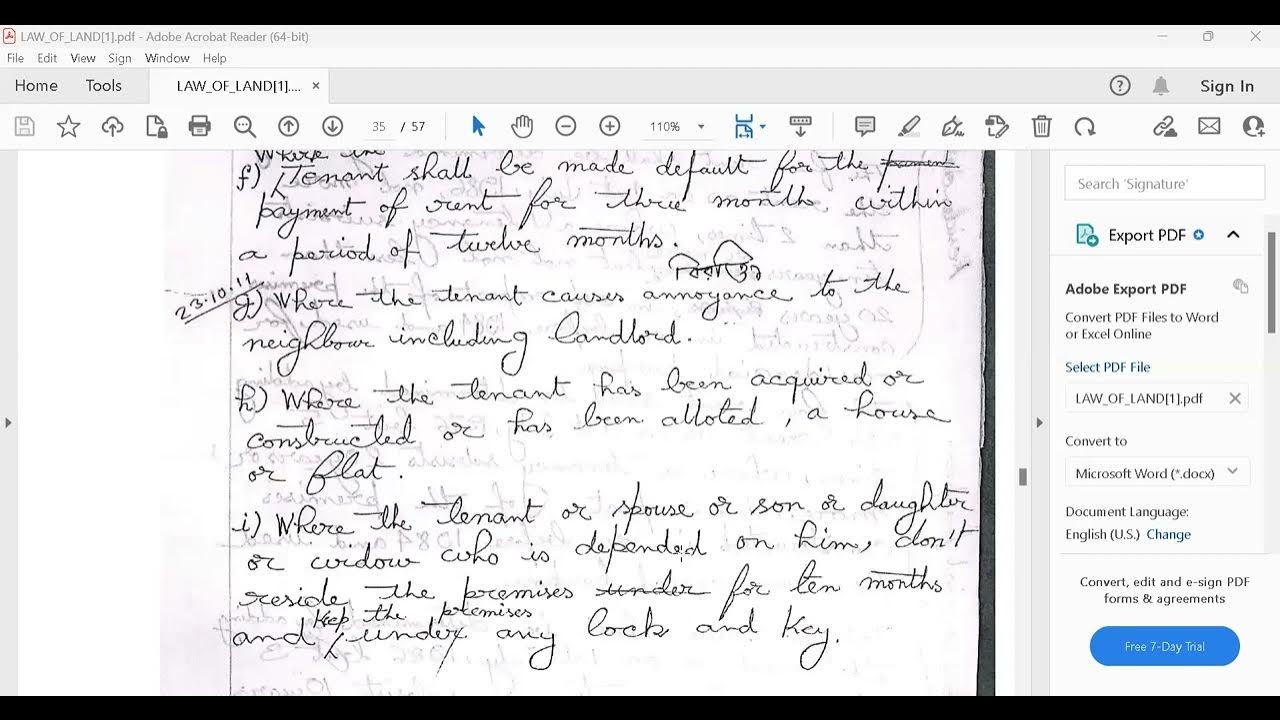 LAW_OF_LAND[1].pdf - Adobe Acrobat Reader (64-bit)
File Edit View Sign Window Help
Home Tools LAW_OF_LAND[1].... × Sign In
35 / 57 110%
Where the
f) Tenant shall be made default for the payment
payment of rent for three month within
a period of twelve months.
বিরক্তি
23.10.11
g) Where the tenant causes annoyance to the
neighbour including landlord.
h) Where the tenant has been acquired or
constructed or has been alloted, a house
or flat.
i) Where the tenant or spouse or son or daughter
or widow who is depended on him, don't
reside the premises under for ten months
Keep the premises
and under any lock and key.
Search 'Signature'
Export PDF
Adobe Export PDF
Convert PDF Files to Word
or Excel Online
Select PDF File
LAW_OF_LAND[1].pdf
Convert to
Microsoft Word (*.docx)
Document Language:
English (U.S.) Change
Convert, edit and e-sign PDF
forms & agreements
Free 7-Day Trial